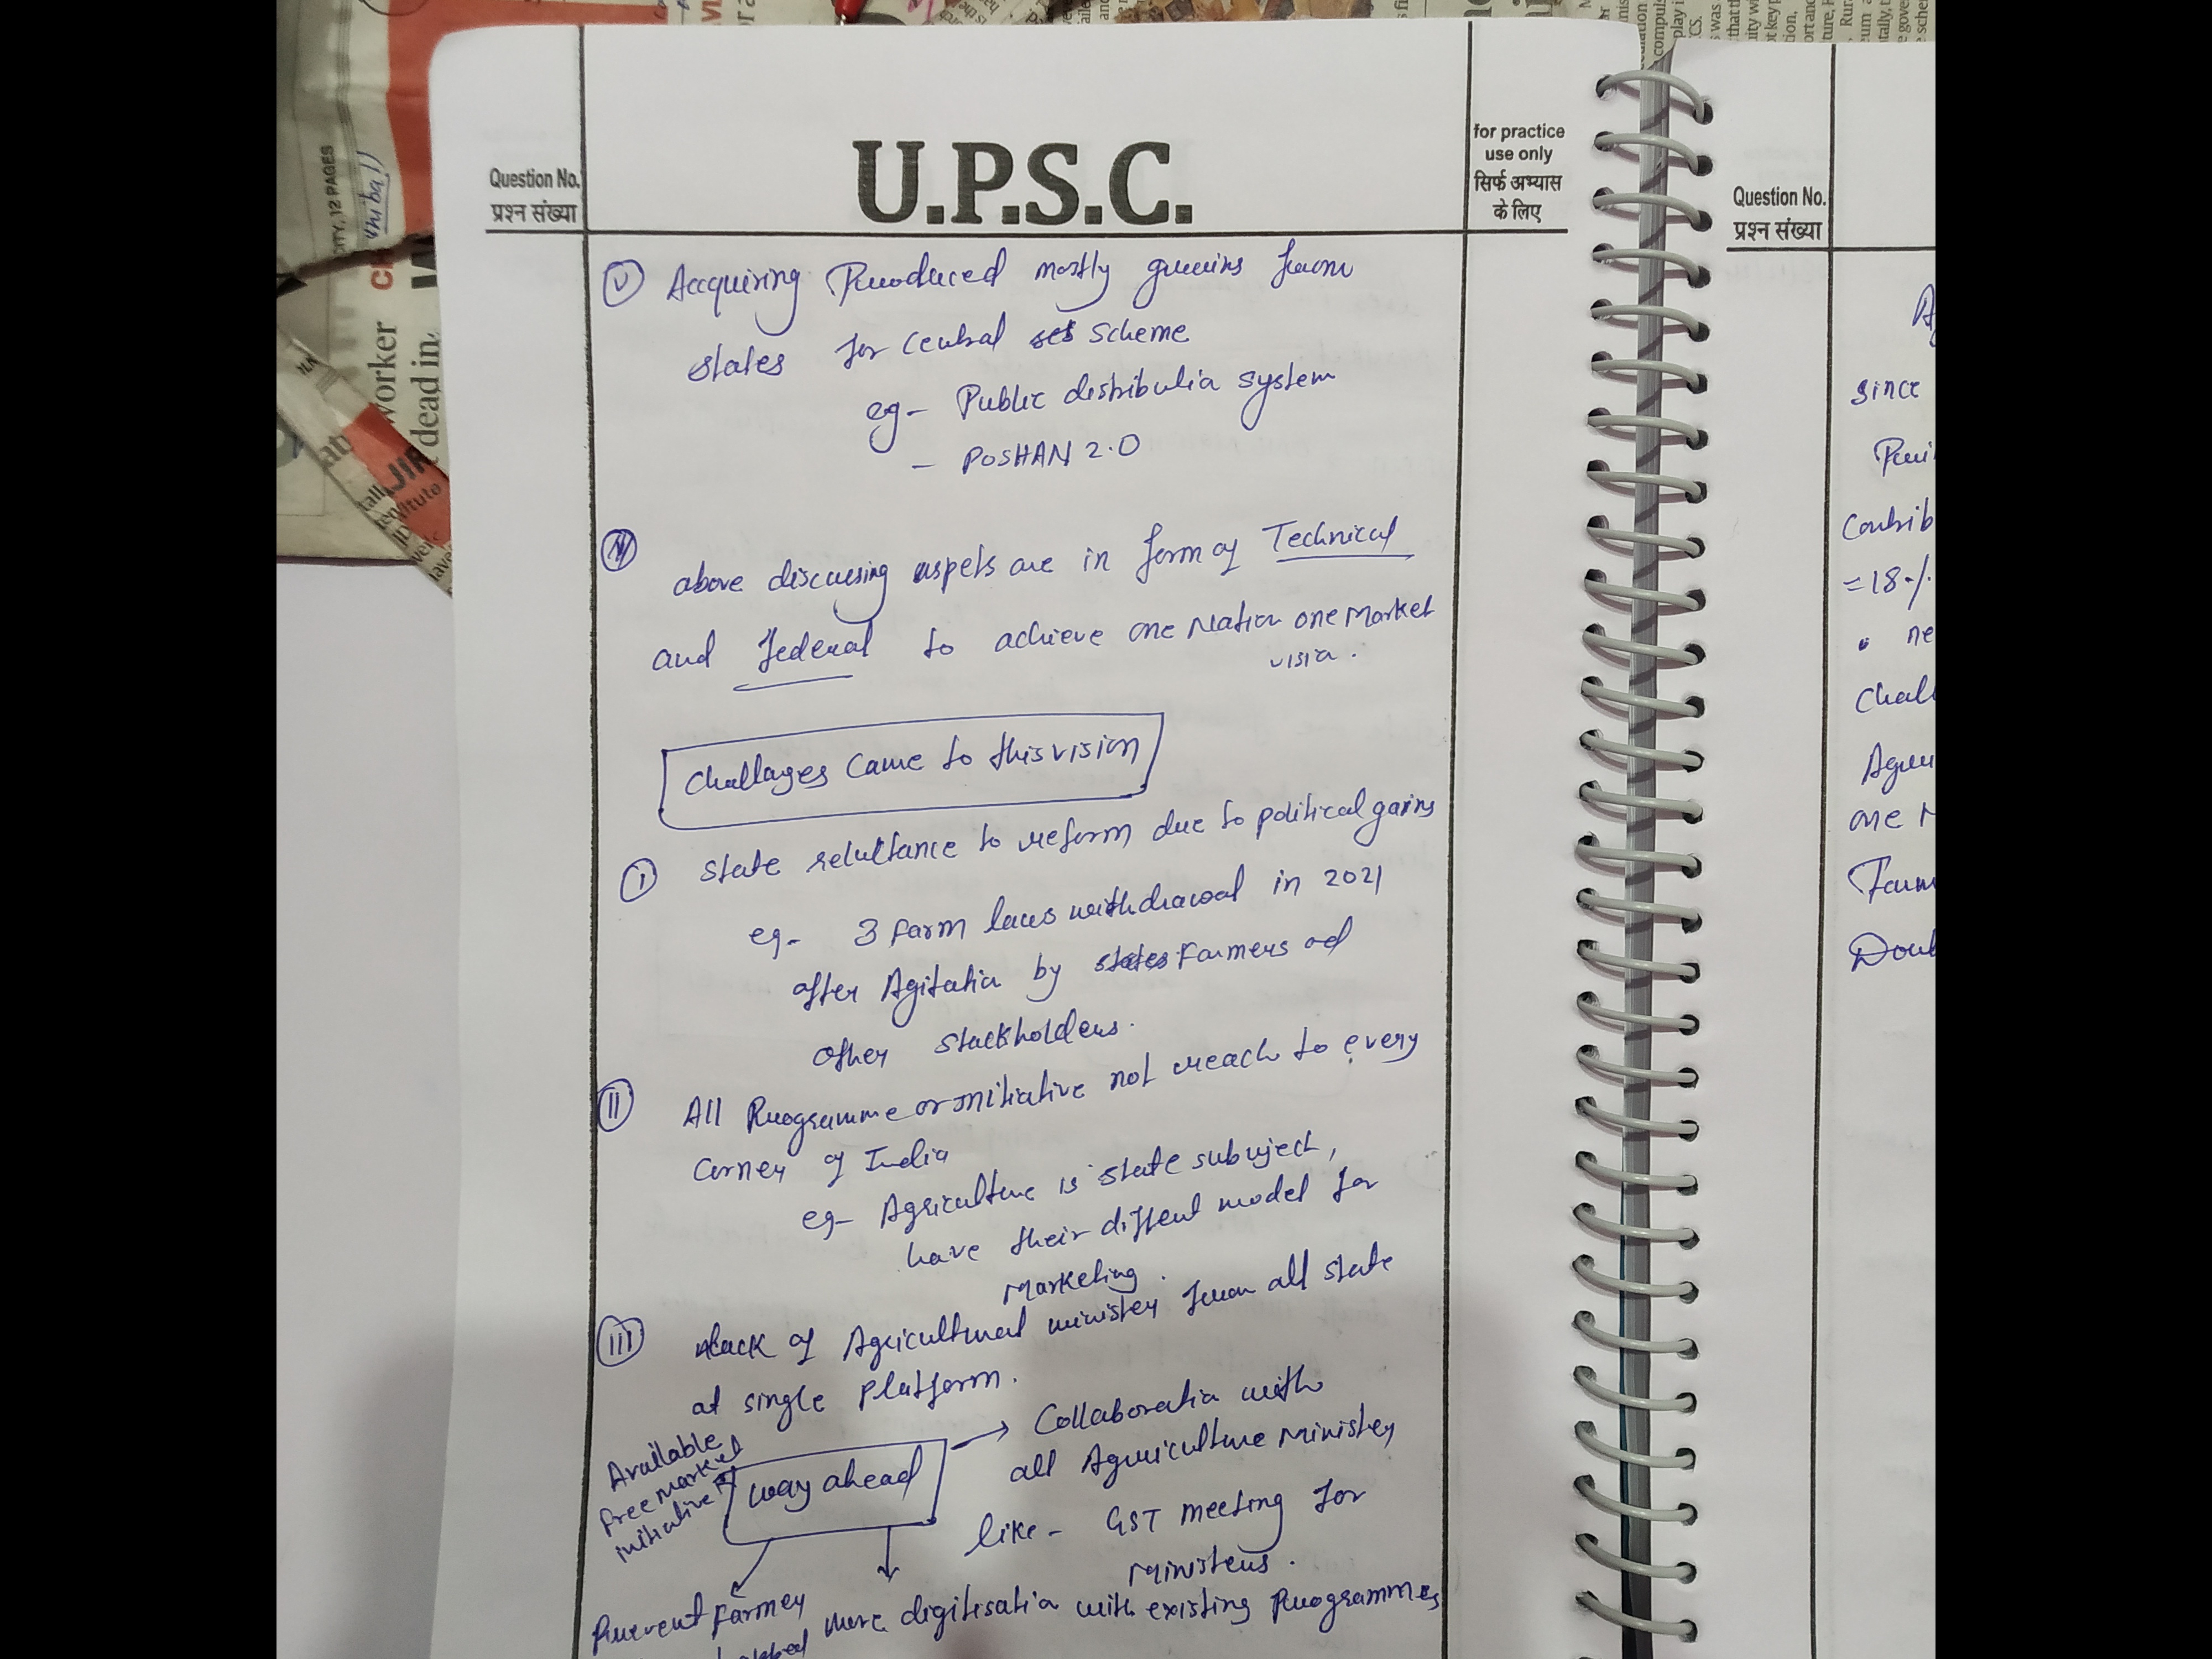 Question No.
प्रश्न संख्या
U.P.S.C.
for practice
use only
सिर्फ अभ्यास
के लिए
(V) Accquiring Produced mostly grains from
states for central scheme
eg- Public distribution system
- POSHAN 2.0
above discussing aspets are in form of Technical
and federal to achieve one Nation one Market
vision.
Challages came to this vision
(I) state relultance to reform due to political gains
eg- 3 farm laws withdrawal in 2021
after Agitation by Farmers ad
other stackholders.
(II) All Programme or initiative not reach to every
corner of India
eg- Agriculture is state subject,
have their diffent model for
Marketing.
(III) lack of Agricultural minister from all state
at single Platform.
Available
free market
initiative
way ahead
→ Collaboration with
all Agriculture Minister
like - GST meeting for
Ministers.
Prevent farmer
more digitisation with existing Programmes
Question No.
प्रश्न संख्या
since
= 18%
one
CITY, 12 PAGES
worker
dead in